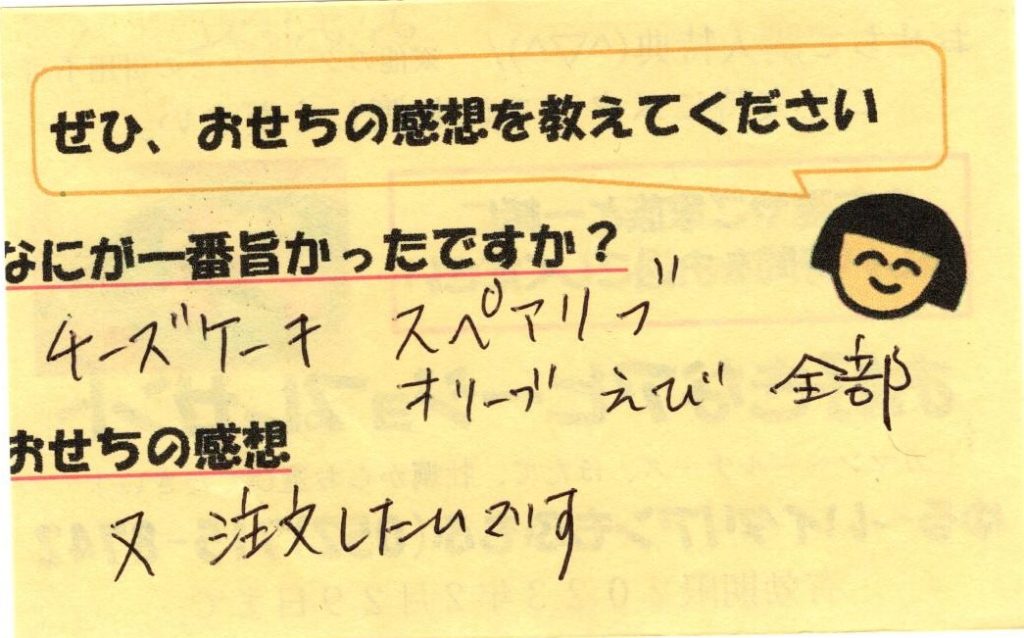 ぜひ、おせちの感想を教えてください
なにが一番旨かったですか？
チーズケーキ スペアリブ
オリーブ えび 全部
おせちの感想
又 注文したいです